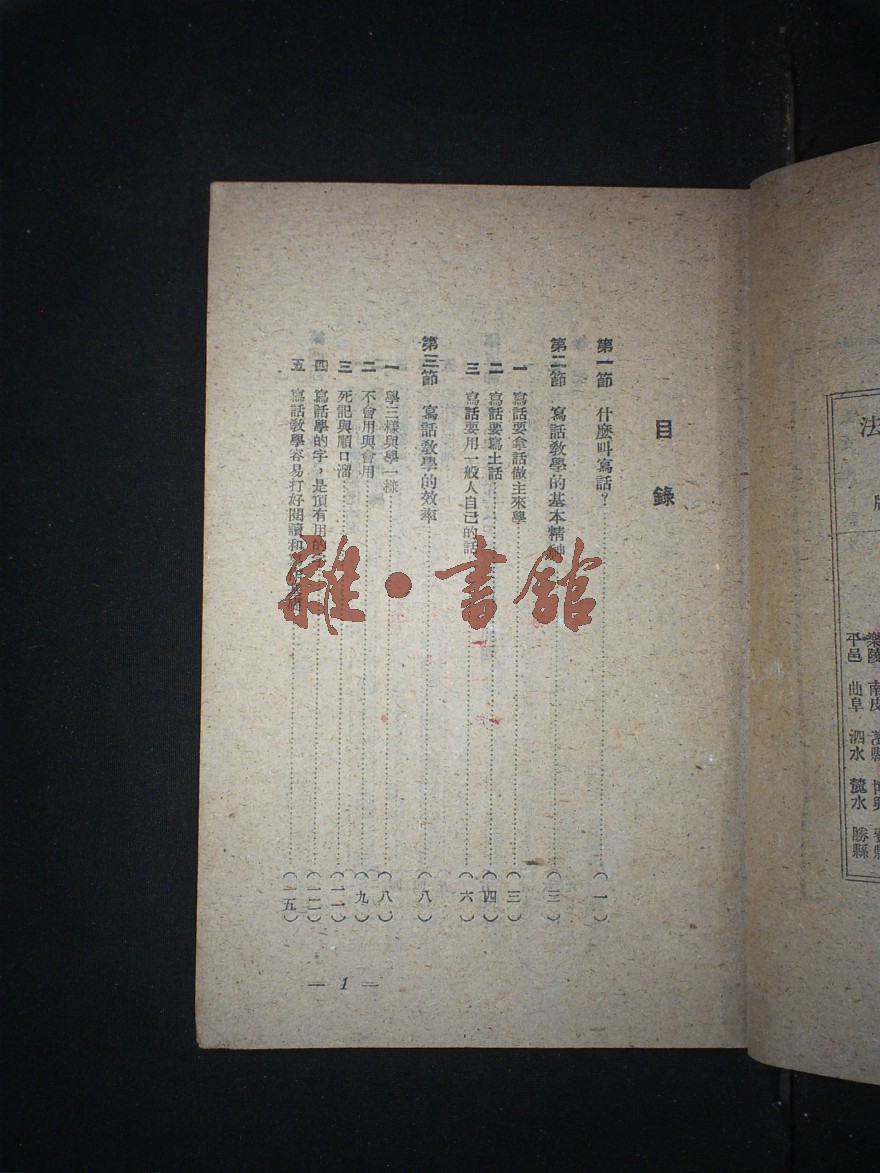 目錄
第一節 什麼叫寫話?(一)
第二節 寫話教學的基本精神(三)
一 寫話要拿話做主來學(三)
二 寫話要寫土話(四)
三 寫話要用一般人自己的話(六)
第三節 寫話教學的效率(八)
一 學三樣與學一樣(八)
二 不會用與會用(九)
三 死記與順口溜(一一)
四 寫話學的字,是頂有用的(一二)
五 寫話教學容易打好閱讀和(一五)
— 1 —
雜·書館
法
樂陵 南皮
平邑 曲阜 泗水